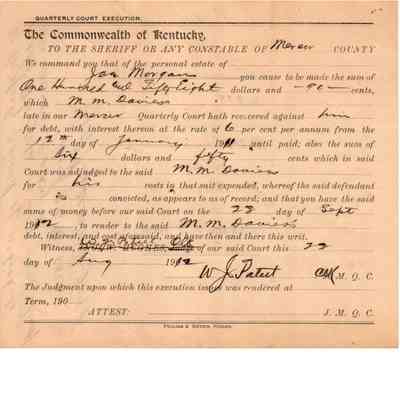 QUARTERLY COURT EXECUTION.
The Commonwealth of Kentucky,
TO THE SHERIFF OR ANY CONSTABLE OF Mercer COUNTY
We command you that of the personal estate of
Jas Morgan you cause to be made the sum of
One Hundred and Fifty Eight dollars and -90- cents,
which M. M. Daviess
late in our Mercer Quarterly Court hath recovered against him
for debt, with interest thereon at the rate of 6 per cent per annum from the
12th day of January 1911 until paid; also the sum of
Six dollars and fifty cents which in said
Court was adjudged to the said M. M. Daviess
for his costs in that suit expended, whereof the said defendant
is convicted, as appears to us of record; and that you have the said
sums of money before our said Court on the 22 day of Sept
1912, to render to the said M. M. Daviess
debt, interest, and cost aforesaid, and have then and there this writ.
Witness, of our said Court this 22
day of Aug 1912
W J M. Q. C.
The Judgment upon which this execution issues was rendered at
Term, 190
ATTEST: J. M. Q. C.